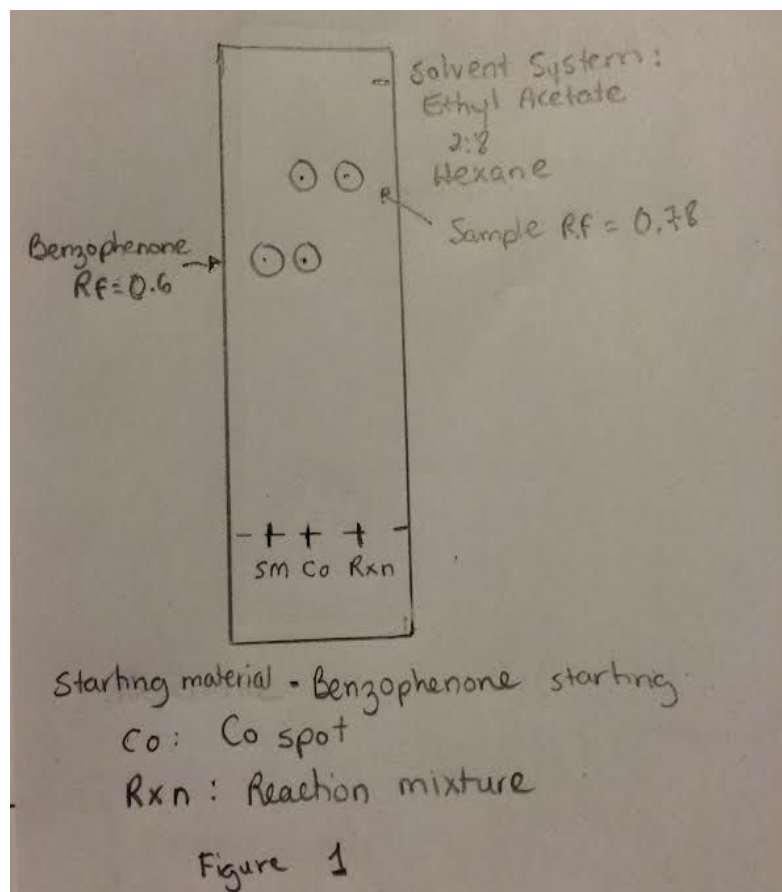 Solvent System:
Ethyl Acetate
2:8
Hexane
Sample Rf = 0.78
Benzophenone
Rf=0.6
SM Co Rxn
Starting material - Benzophenone starting
Co: Co spot
Rxn: Reaction mixture
Figure 1